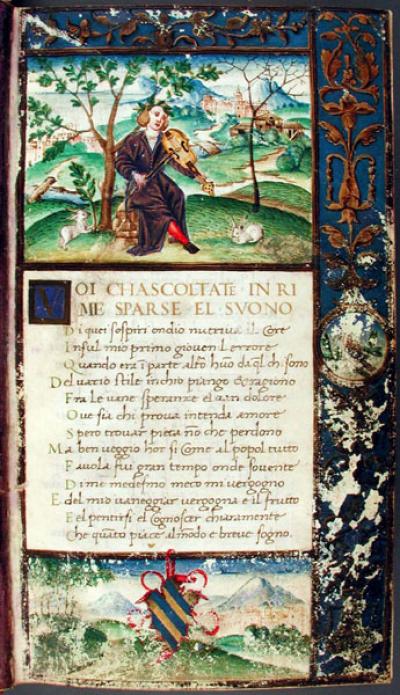 VOI CHASCOLTATE IN RI
ME SPARSE EL SVONO
Di quei sospiri ondio nutriua il Core
Insul mio primo giouenil errore
Quando era i parte altro huō da ql chi sono
Del uario stile inchio piango & ragiono
Fra le uane speranze el uan dolore
Oue sia chi proua intenda amore
Spero trouar pieta nō che perdono
Ma ben ueggio hor si Come al popol tutto
Fauola fui gran tempo onde souente
Di me medesmo meco mi uergogno
E del mio uaneggiar uergogna e il frutto
E el pentirsi el Cognoscer chiaramente
Che quāto piace al mōdo e breue sogno.